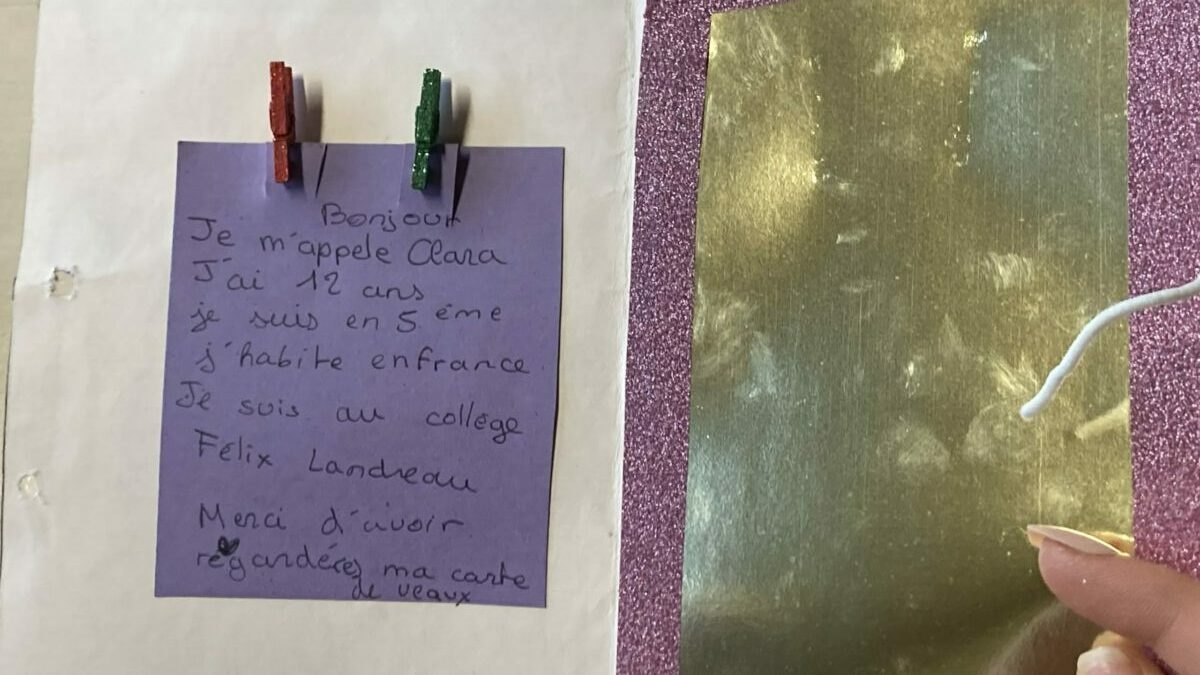 Bonjour
Je m'appele Clara
J'ai 12 ans
je suis en 5 éme
j'habite en france
Je suis au collège
Félix Landreau
Merci d'avoir
regardérez ma carte
de veaux